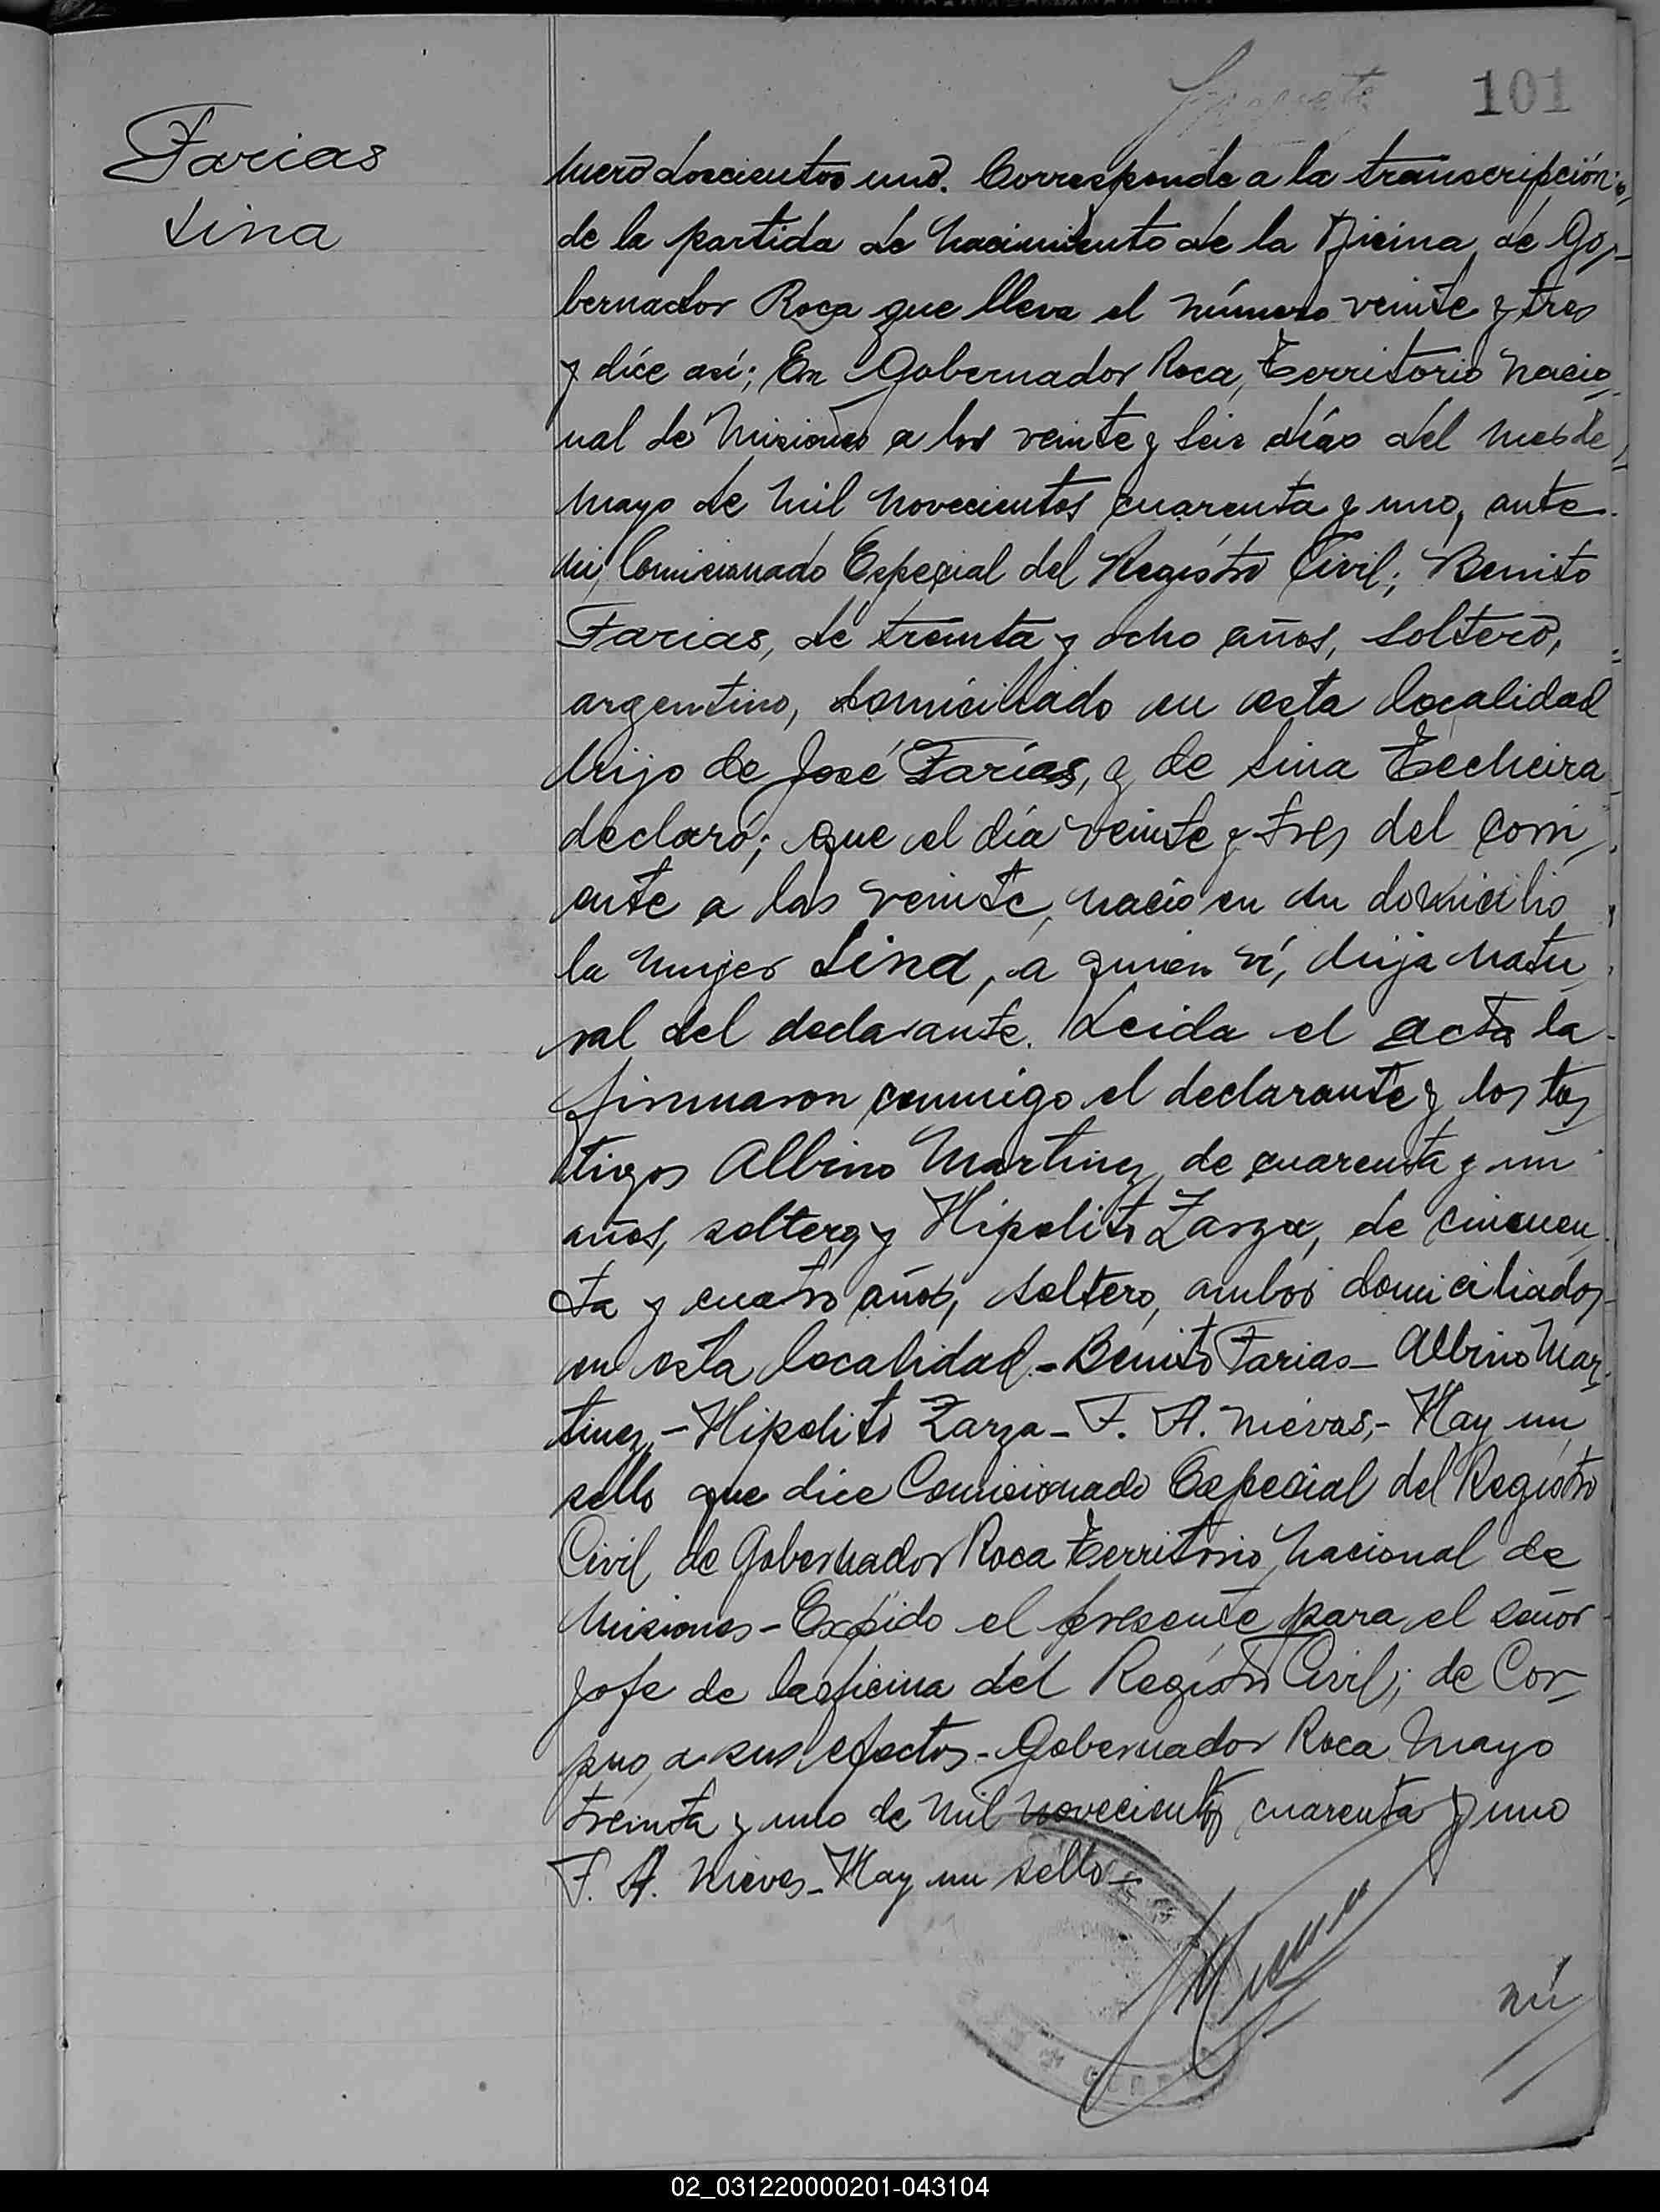 101
Farias
Lina
mero doscientos uno. Corresponde a la transcripción
de la partida de nacimiento de la Oficina de Go-
bernador Roca que lleva el número veinte y tres
y díce así; En Gobernador Roca, Territorio Nacio-
nal de Misiones a los veinte y seis días del mes de
mayo de mil novecientos cuarenta y uno, ante
mi, Comicionado Especial del Registro Civil; Benito
Farias, de treinta y ocho años, soltero,
argentino, domiciliado en esta localidad
hijo de José Farías, y de Lina Techeira
declaró; que el día veinte y tres del corri-
ente a las veinte, nació en su domicilio
la mujer Lina, a quien ví, hija natu-
ral del declarante. Leida el acta la
firmaron conmigo el declarante y los tes-
tigos Albino Martinez, de cuarenta y un
años, soltero, y Hipolito Zarza, de cincuen-
ta y cuatro años, soltero, ambos domiciliados
en esta localidad.- Benito Farias - Albino Mar-
tinez,- Hipolito Zarza - F. A. Nievas,- Hay un
sello que dice Comicionado Especial del Registro
Civil de Gobernador Roca Territorio Nacional de
Misiones - Expido el presente para el señor
Jefe de la oficina del Registro Civil; de Cor-
pus, a sus efectos.- Gobernador Roca Mayo
treinta y uno de mil novecientos cuarenta y uno
F. A. Nieves - Hay un sello -
nú
02_031220000201-043104